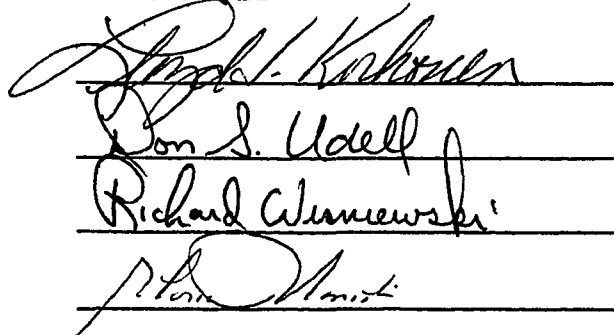 Lloyd J. Korhonen
Don S. Udell
Richard Wisniewski